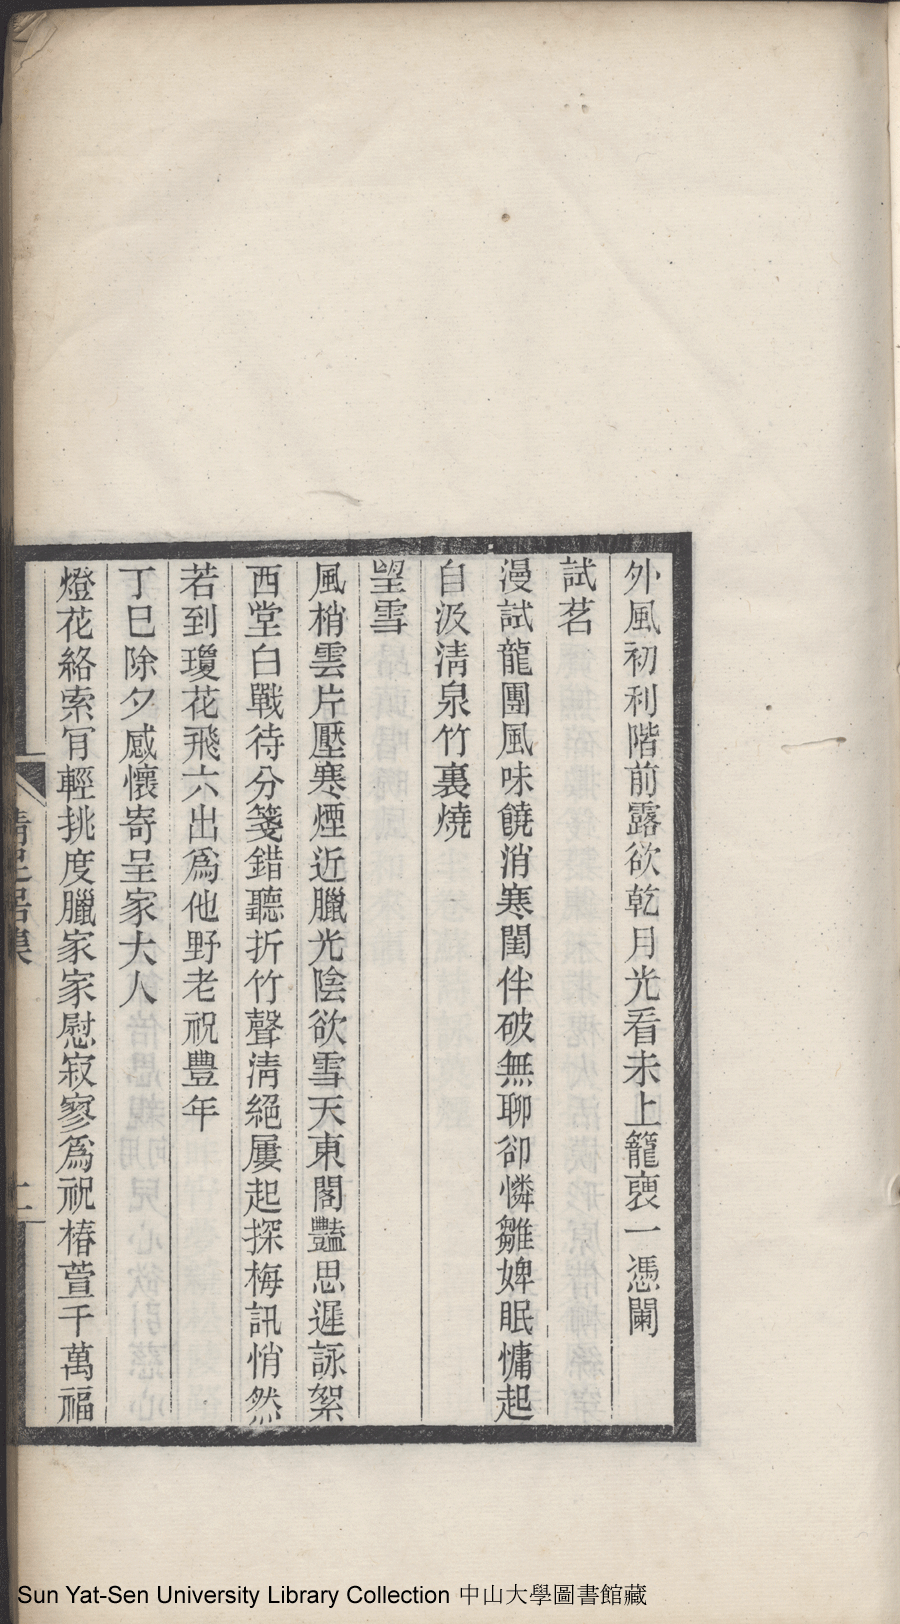 外風初利階前露欲乾月光看未上籠褎一憑闌
試茗
漫試龍團風味饒消寒閨伴破無聊卻憐雛婢眠慵起
自汲淸泉竹裏燒
朢雪
風梢雲片壓寒煙近臘光陰欲雪天東閣豔思遲詠絮
西堂白戰待分箋錯聽折竹聲淸絕屢起探梅訊悄然
若到瓊花飛六出爲他野老祝豐年
丁巳除夕感懷寄呈家大人
燈花絡索肎輕挑度臘家家慰寂寥爲祝椿萱千萬福
Sun Yat-Sen University Library Collection 中山大學圖書館藏